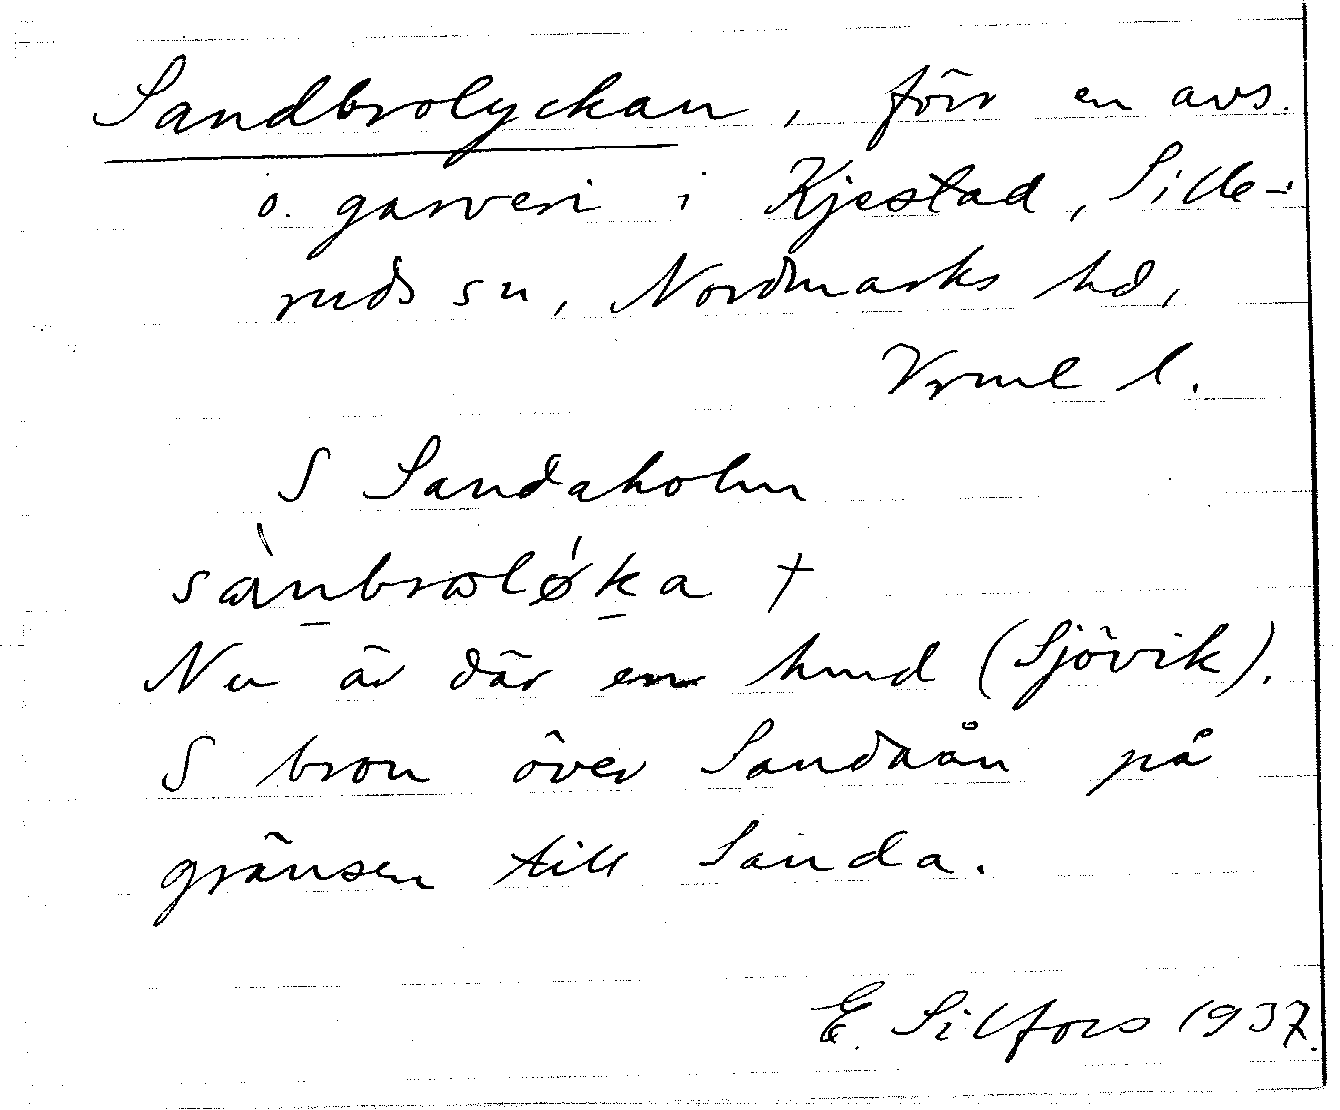 Sandbrolyckan, förr en avs.
o. garveri i Kjestad, Sille-
ruds sn, Nordmarks hd,
Vrml l.
S Sandaholm
sànbrolǿka †
Nu är där en hmd (Sjövik).
S bron över Sandaån på
gränsen till Sanda.
E. Silfors 1937.